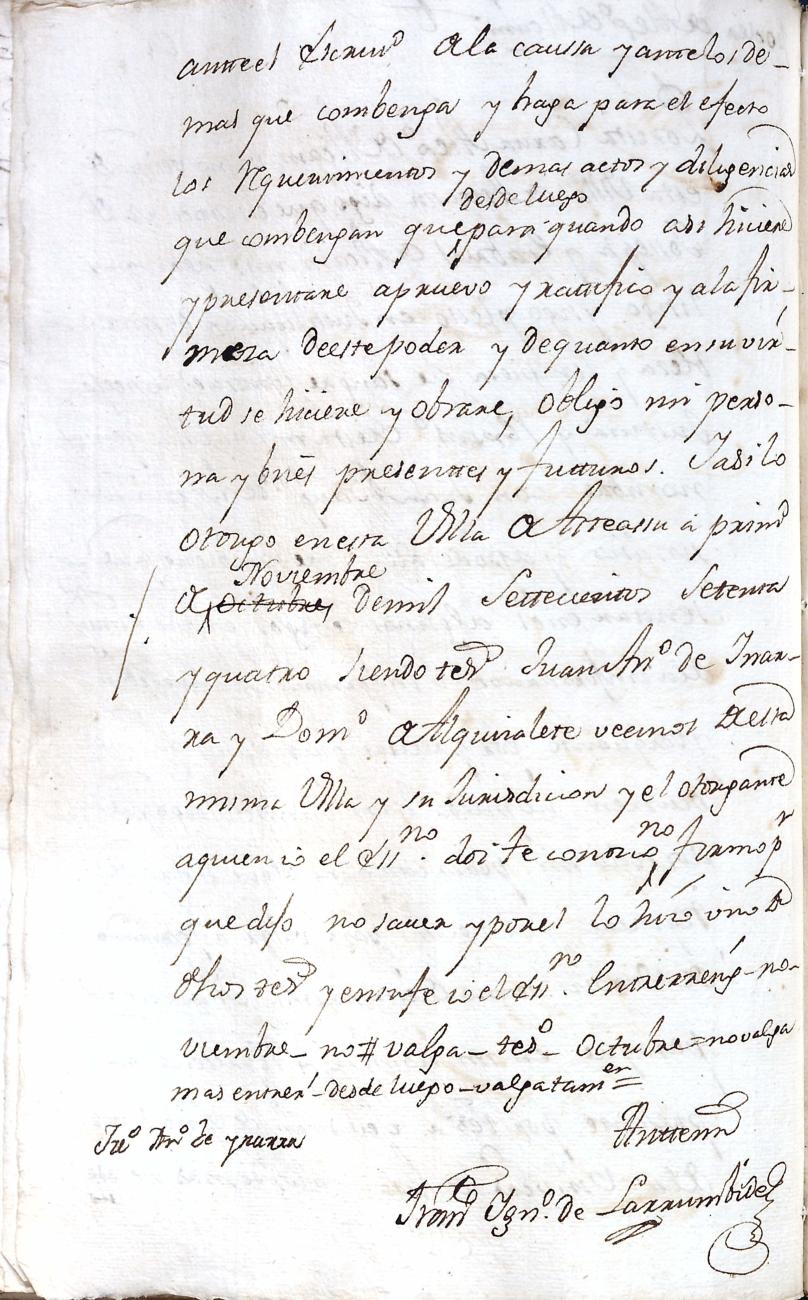 antte el Escriv.o de la caussa y ante los de-
mas que combenga y haga para el efecto
los Requerimientos y demas actos y diligencias
desde luego
que combengan que para quando asi hiciere
y presentare apruevo y rattifico y a la fir-
meza de este poder y de quanto en su vir-
tud se hiciere y obrare, obligo mi perso-
na y bnēs presenttes y futturos. I asi lo
otorgo en esta Villa de Atteassu á prim.o
Noviembre
de Octubre, de mil Settecientos Setenta
y quatro siendo tes.os Juan Antt.o de Inar-
ra y Dom.o de Alquizalete vecinos de esta
misma Villa y su Jurisdicion y el otorgante
a quien io el Ess.no doi fe conozco no firmo p.r
que dijo no saver y por el lo hizo uno de
dhos tes.os y en su fe io el Ess.no. Entrerreng.s no-
viembre - no # valga - tes.do - Octubre = no valga
mas entrer.s - desde luego - valga tam.en =
Ju.o Ant.o de ynarra
Antte mi
Fran.co Ign.o de Larrumbide